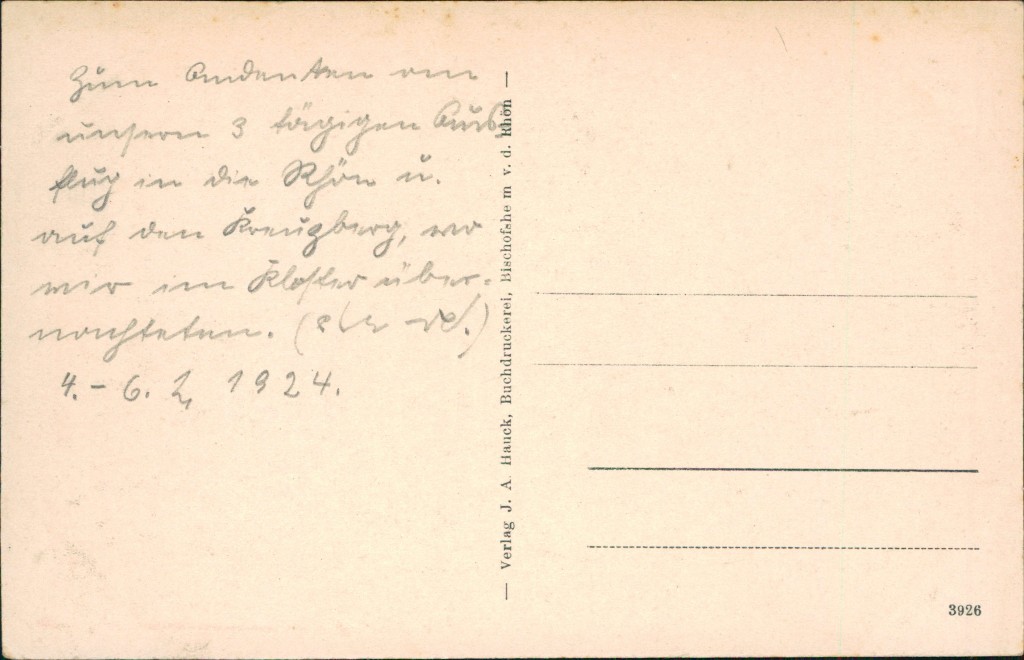 Zum Andenken an
unsern 3 tägigen Aus-
flug in die Rhön u.
auf den Kreuzberg, wo
wir im Kloster über-
nachteten.
4. - 6. 1924.
— Verlag J. A. Hauck, Buchdruckerei, Bischofshe m v. d. Rhön —
3926